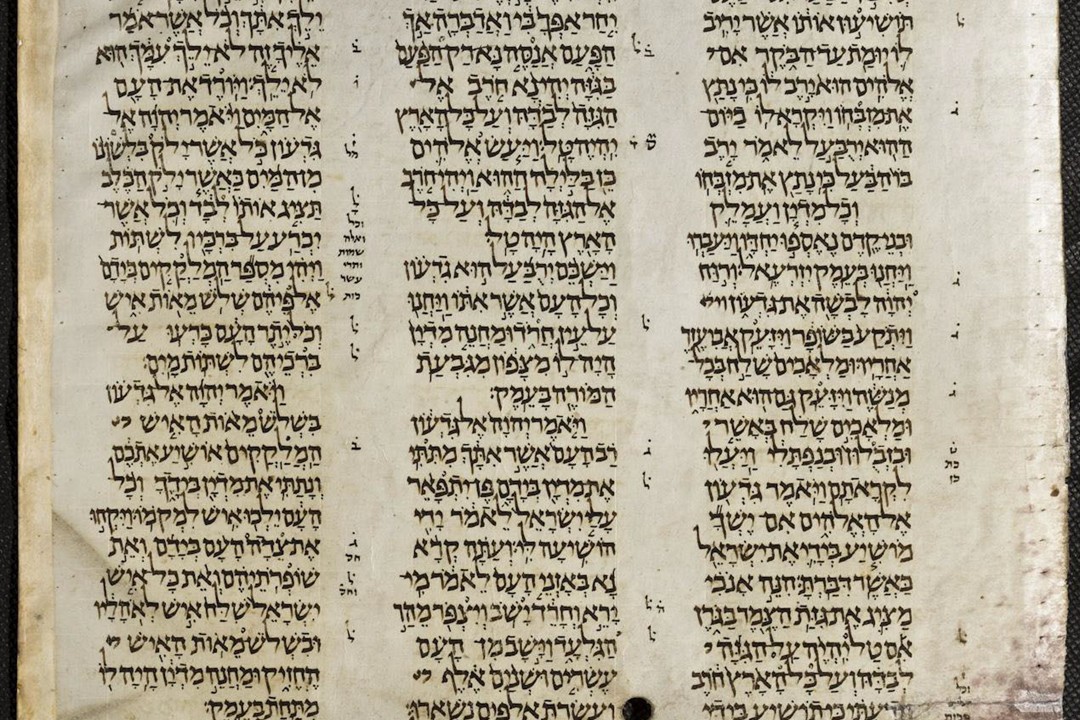 תושיעון אותו אשר יריב
לו יומת עד הבקר אם
אלהים הוא ירב לו כי נתץ
את מזבחו ויקרא לו ביום
ההוא ירבעל לאמר ירב
בו הבעל כי נתץ את מזבחו
וכל מדין ועמלק
ובני קדם נאספו יחדו ויעברו
ויחנו בעמק יזרעאל ורוח
יהוה לבשה את גדעון
ויתקע בשופר ויזעק אביעזר
אחריו ומלאכים שלח בכל
מנשה ויזעק גם הוא אחריו
ומלאכים שלח באשר
ובזבלון ובנפתלי ויעלו
לקראתם ויאמר גדעון
אל האלהים אם ישך
מושיע בידי את ישראל
כאשר דברת הנה אנכי
מציג את גזת הצמר בגרן
אם טל יהיה על הגזה
לבדה ועל כל הארץ חרב
וידעתי כי תושיע בידי
יחר אפך בי ואדברה אך
הפעם אנסה נא רק הפעם
בגזה יהי נא חרב אל
הגזה לבדה ועל כל הארץ
יהיה טל ויעש אלהים
כן בלילה ההוא ויהי חרב
אל הגזה לבדה ועל כל
הארץ היה טל
וישכם ירבעל הוא גדעון
וכל העם אשר אתו ויחנו
על עין חרד ומחנה מדין
היה לו מצפון מגבעת
המורה בעמק׃
ויאמר יהוה אל גדעון
רב העם אשר אתך מתתי
את מדין בידם פן יתפאר
עלי ישראל לאמר ידי
הושיעה לי ועתה קרא
נא באזני העם לאמר מי
ירא וחרד ישב ויצפר מהר
הגלעד וישב מן העם
עשרים ושנים אלף
ועשרת אלפים נשארו׃
ילך אתך וכל אשר אמר
אליך זה לא ילך עמך הוא
לא ילך ויורד את העם
אל המים ויאמר יהוה אל
גדעון כל אשר ילק בלשונו
מן המים כאשר ילק הכלב
תציג אותו לבד וכל אשר
יכרע על ברכיו לשתות
ויהי מספר המלקקים בידם
אל פיהם שלש מאות איש
וכל יתר העם כרעו על
ברכיהם לשתות מים׃
ויאמר יהוה אל גדעון
בשלש מאות האיש
המלקקים אושיע אתכם
ונתתי את מדין בידך וכל
העם ילכו איש למקמו ויקחו
את צדה העם בידם ואת
שופרתיהם ואת כל איש
ישראל שלח איש לאהליו
ובשלש מאות האיש
החזיק ומחנה מדין היה לו
מתחת בעמק׃